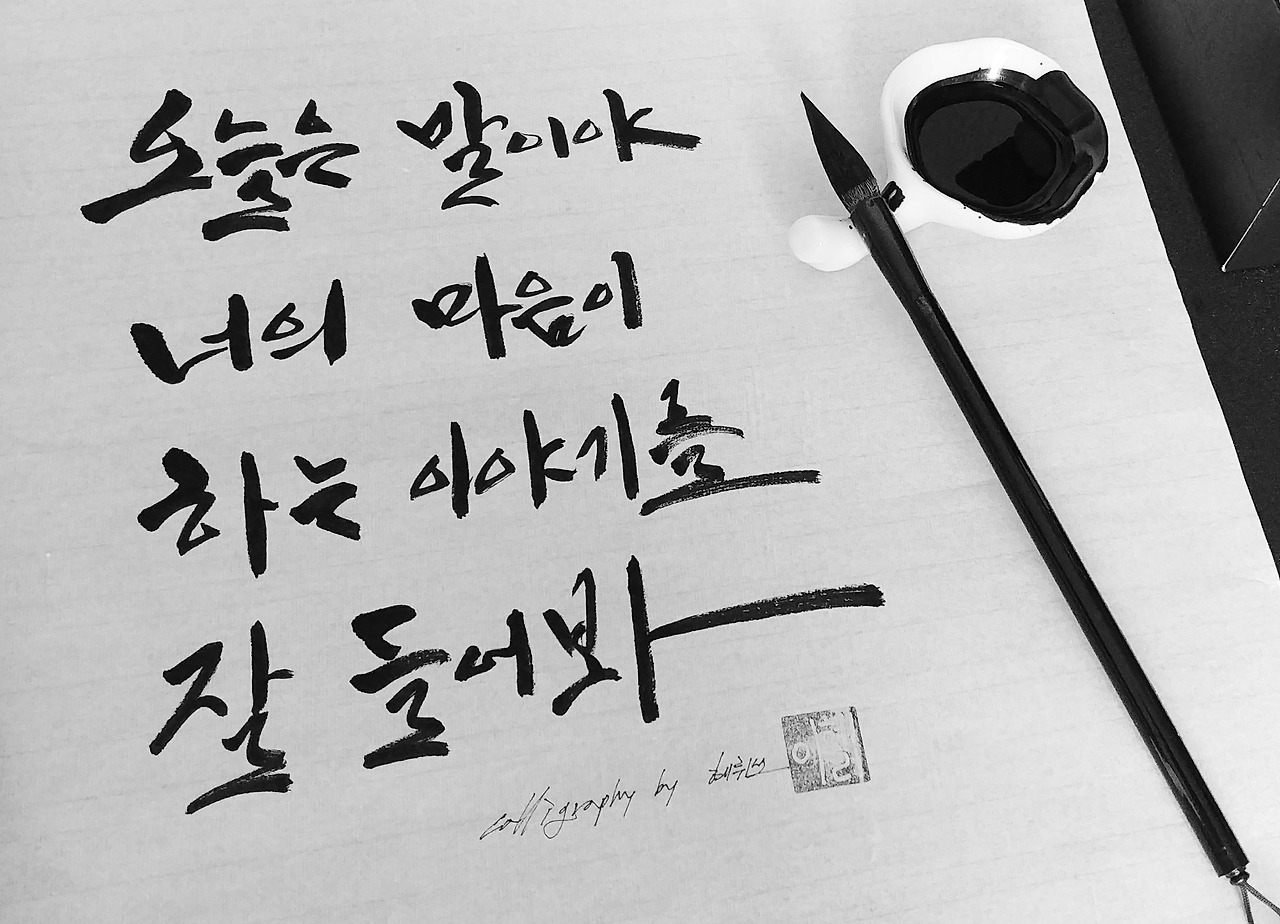 오늘은 말이야
너의 마음이
하는 이야기를
잘 들어봐
calligraphy by